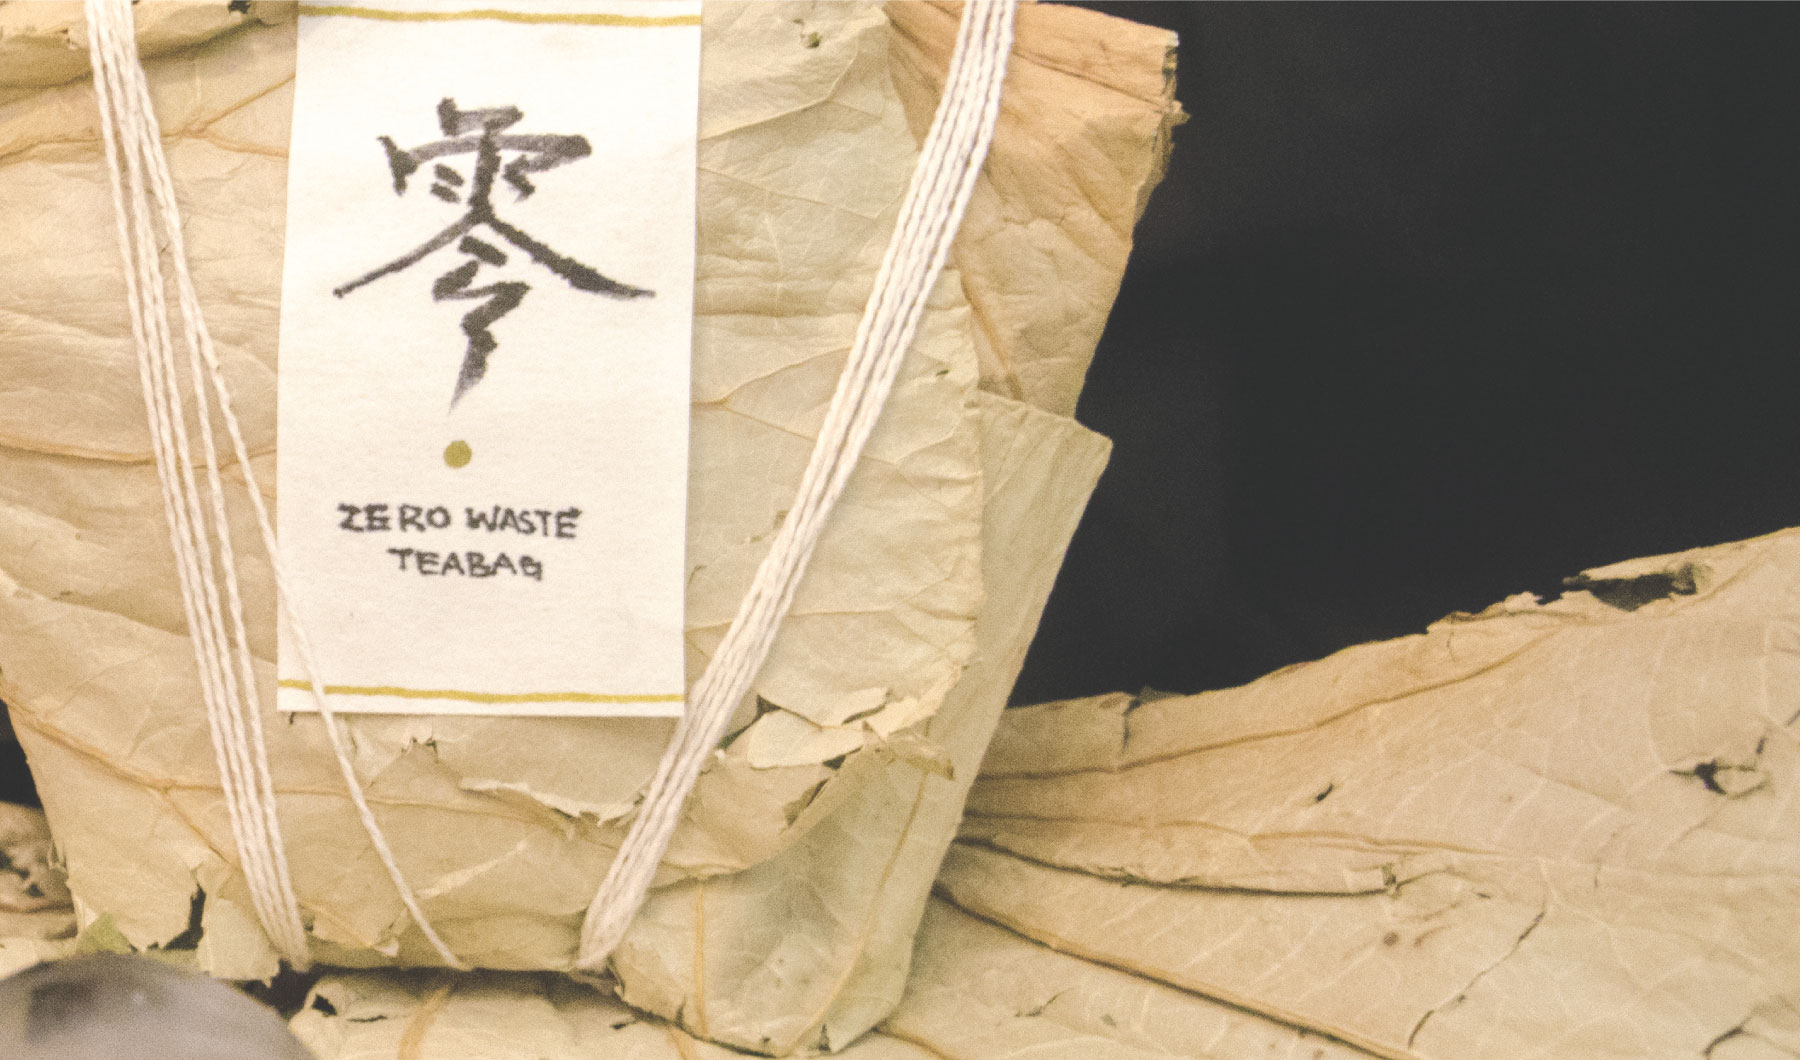 零
ZERO WASTE
TEABAG